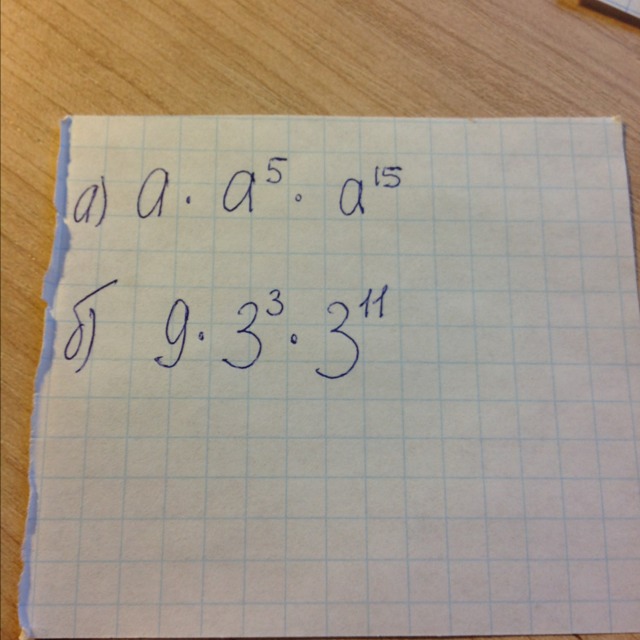 а) a · a⁵ · a¹⁵
б) 9 · 3³ · 3¹¹